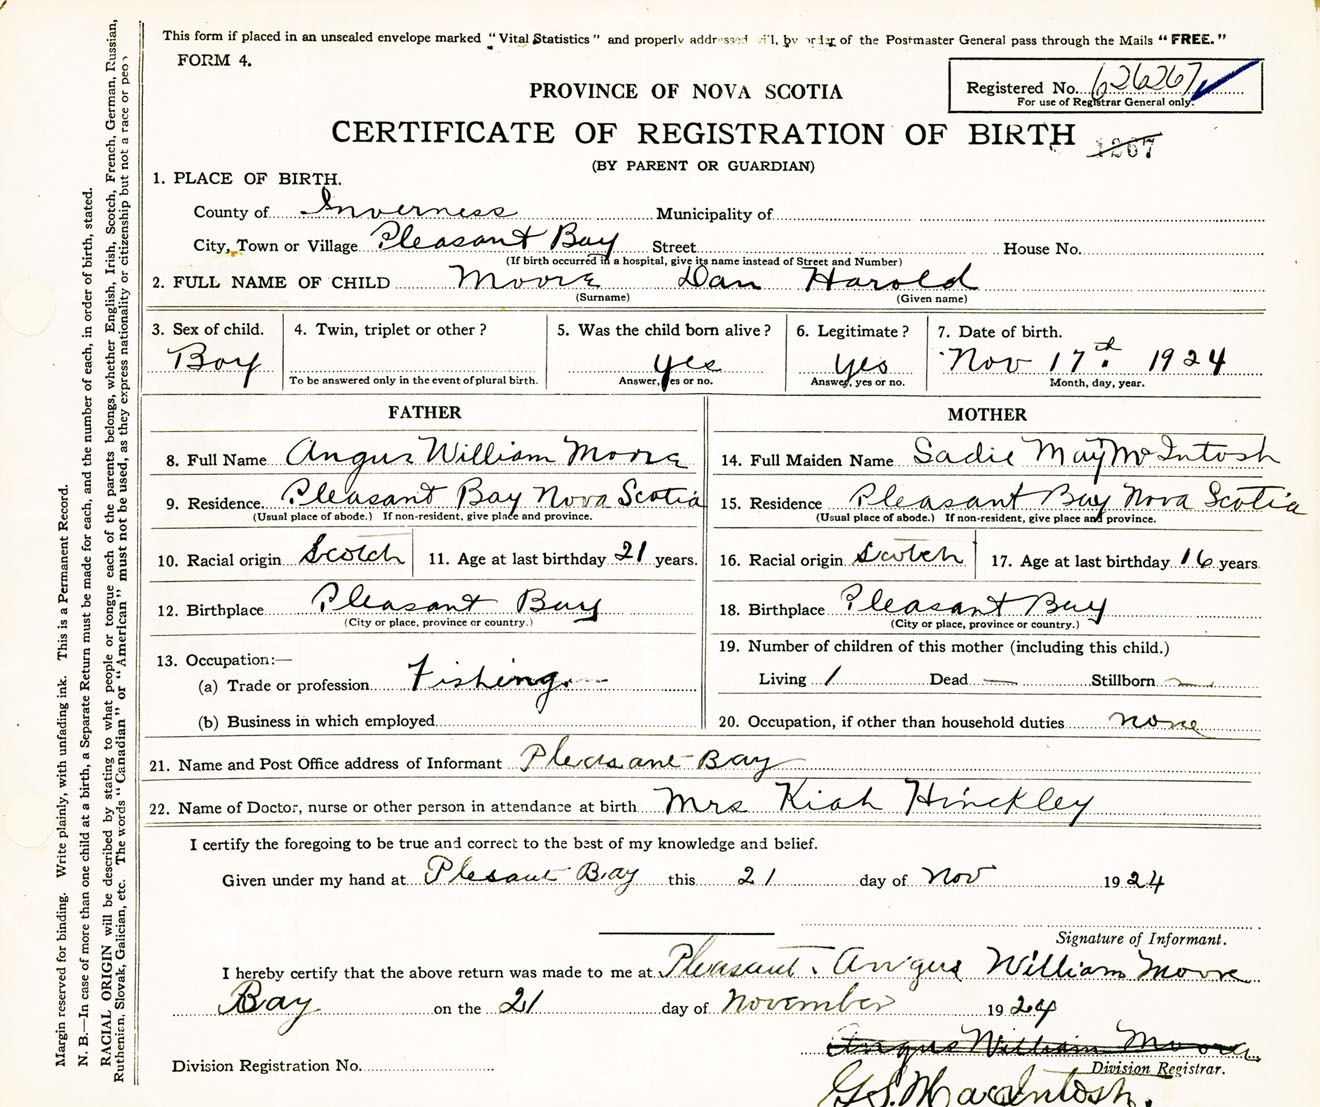 This form if placed in an unsealed envelope marked "Vital Statistics" and properly addressed will, by order of the Postmaster General pass through the Mails "FREE."
FORM 4.
Registered No. 626267
For use of Registrar General only.
PROVINCE OF NOVA SCOTIA
CERTIFICATE OF REGISTRATION OF BIRTH
1267
(BY PARENT OR GUARDIAN)
1. PLACE OF BIRTH.
County of Inverness Municipality of
City, Town or Village Pleasant Bay Street House No.
(If birth occurred in a hospital, give its name instead of Street and Number)
2. FULL NAME OF CHILD Moore Dan Harold
(Surname) (Given name)
3. Sex of child. 4. Twin, triplet or other ? 5. Was the child born alive ? 6. Legitimate ? 7. Date of birth.
Boy yes yes Nov 17th. 1924
To be answered only in the event of plural birth. Answer, yes or no. Answer, yes or no. Month, day, year.
FATHER
8. Full Name Angus William Moore
9. Residence Pleasant Bay Nova Scotia
(Usual place of abode.) If non-resident, give place and province.
10. Racial origin Scotch 11. Age at last birthday 21 years.
12. Birthplace Pleasant Bay
(City or place, province or country.)
13. Occupation:—
(a) Trade or profession Fishing
(b) Business in which employed
MOTHER
14. Full Maiden Name Sadie May McIntosh
15. Residence Pleasant Bay Nova Scotia
(Usual place of abode.) If non-resident, give place and province.
16. Racial origin Scotch 17. Age at last birthday 16 years.
18. Birthplace Pleasant Bay
(City or place, province or country.)
19. Number of children of this mother (including this child.)
Living 1 Dead — Stillborn —
20. Occupation, if other than household duties none
21. Name and Post Office address of Informant Pleasant Bay
22. Name of Doctor, nurse or other person in attendance at birth Mrs Kiah Hinckley
I certify the foregoing to be true and correct to the best of my knowledge and belief.
Given under my hand at Plesant Bay this 21 day of Nov 1924
Signature of Informant.
I hereby certify that the above return was made to me at Pleasant. Angus William Moore
Bay on the 21 day of November 1924
Angus William Moore
Division Registration No. Division Registrar.
G.S. MacIntosh.
Margin reserved for binding. Write plainly, with unfading ink. This is a Permanent Record.
N. B.—In case of more than one child at a birth, a Separate Return must be made for each, and the number of each, in order of birth, stated.
RACIAL ORIGIN will be described by stating to what people or tongue each of the parents belongs, whether English, Irish, Scotch, French, German, Russian,
Ruthenian, Slovak, Galician, etc. The words "Canadian" or "American" must not be used, as they express nationality or citizenship but not a race or peo